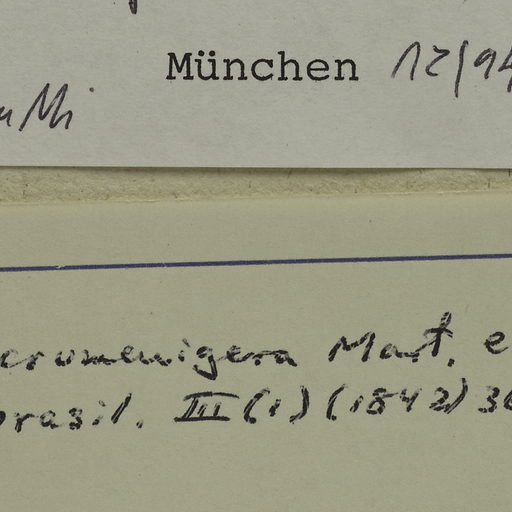 München 12/94
erumenigera Mart. e
brasil. III (1) (1842) 30